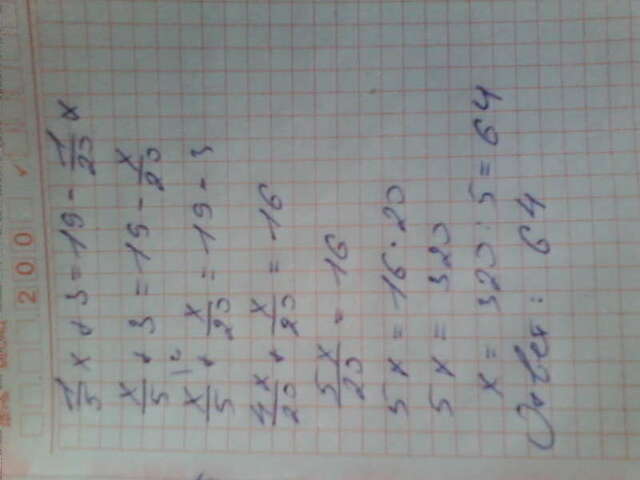 200
1/5 x + 3 = 19 - 1/20 x
x/5 + 3 = 19 - x/20
x/5 + x/20 = 19 - 3
4x/20 + x/20 = 16
5x/20 = 16
5x = 16 · 20
5x = 320
x = 320 : 5 = 64
Ответ: 64